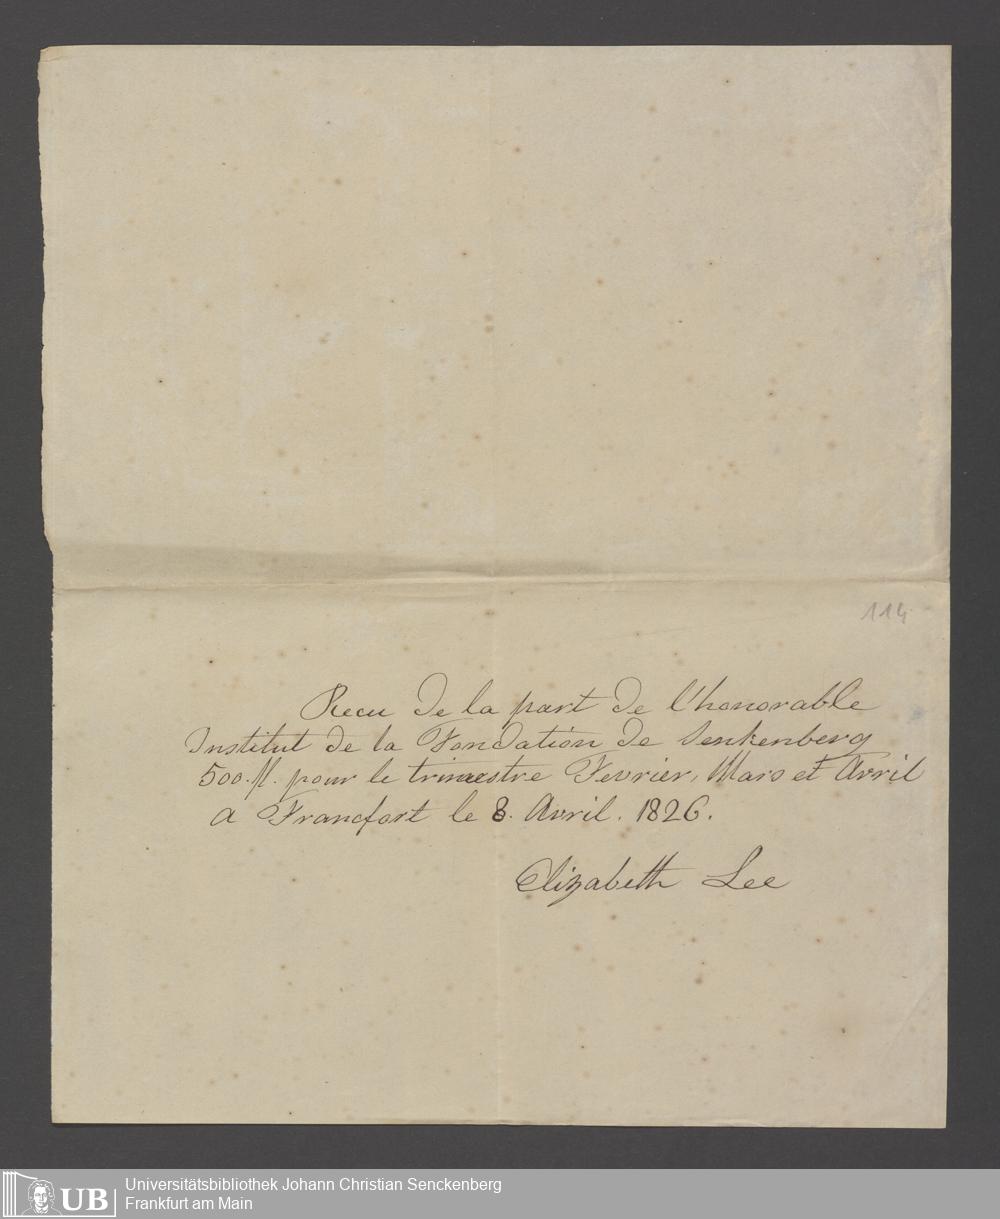 114
Recu de la part de l'honorable
Institut de la Fondation de Senkenberg
500. fl. pour le trimestre Fevrier, Mars et Avril
a Francfort le 8. Avril. 1826.
Elizabeth Lee
UB
Universitätsbibliothek Johann Christian Senckenberg
Frankfurt am Main